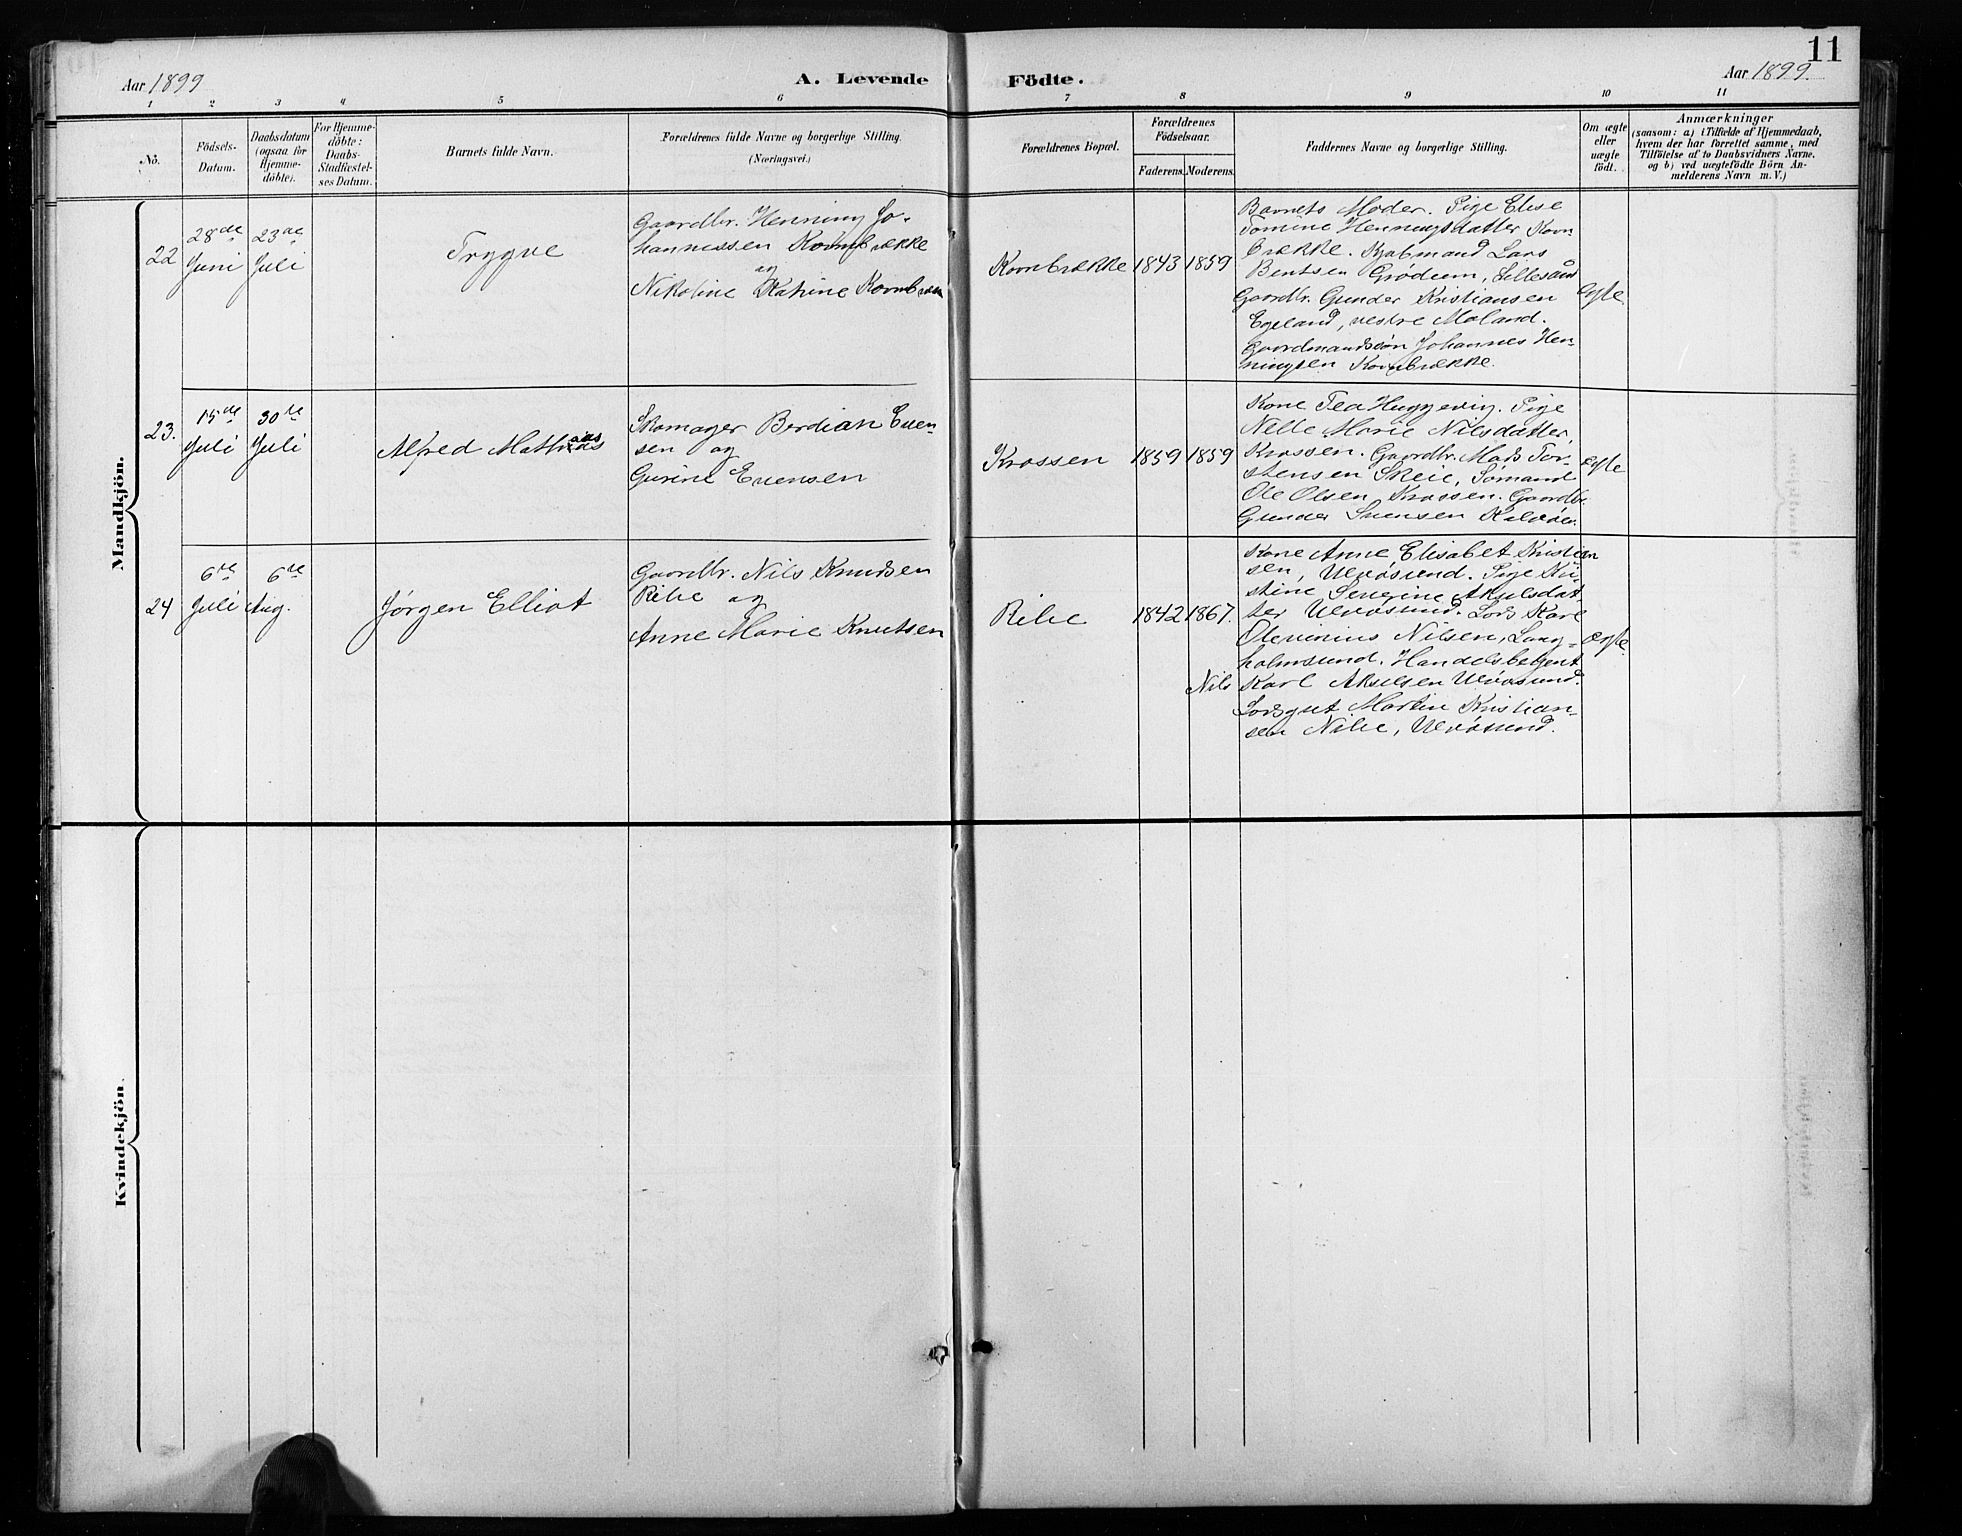 11
Aar 1899
A. Levende
Födte.
Aar 1899.
1 2 3 4 5 6 7 8 9 10 11
No.
Födsels-
Datum.
Daabsdatum
(ogsaa for
Hjemme-
döbte).
For Hjemme-
döbte:
Daabs-
Stadfæstel-
ses Datum.
Barnets fulde Navn.
Forældrenes fulde Navne og borgerlige Stilling.
(Næringsvei.)
Forældrenes Bopæl.
Forældrenes
Födselsaar.
Faderens.
Moderens.
Faddernes Navne og borgerlige Stilling.
Om ægte
eller
uægte
födt.
Anmærkninger
(saasom: a) i Tilfælde af Hjemmedaab,
hvem der har forrettet samme, med
Tilföielse af to Daabsvidners Navne,
og b) ved uægtefödte Börn An-
melderens Navn m. V.)
Mandkjön.
22
28de
Juni
23de
Juli
Trygve
Gaardbr. Henning Jo-
hannessen Kornbrække
og
Nikoline Katrine Kornbræk
Kornbrække
1843
1859
Barnets Moder. Pige Elise
Tomine Henningsdatter Korn
brække. Kjøbmand Lars
Bentsen Grødum, Lillesand
Gaardbr. Gunder Kristiansen
Egeland, vestre Moland.
Gaardmandssøn Johannes Hen-
ningsen Kornbrække.
ægte.
23.
15de
Juli
30te
Juli
Alfred Mathias
Skomager Berdian Even-
sen og
Gurine Evensen
Krossen
1859
1859
Kone Tea Huggevig. Pige
Nelle Marie Nilsdatter,
Krossen. Gaardbr. Mads Tor-
stensen Skeie, Sømand
Ole Olsen Krossen. Gaardbr.
Gunder Svensen
ægte
24
6te
Juli
6te
Aug.
Jørgen Elliot
Gaardbr. Nils Knudsen
Ribe og
Anne Marie Knutsen
Ribe
1842
1867.
Kone Anne Elisabet Kristian
sen, Ulvøsund. Pige Kri-
stine Akselsdat
ter Ulvøsund. Lods Karl
Olevinius Nilsen, Lang-
holmsund. Handelsbetjent
Nils Karl Akselsen Ulvøsund.
Lodsgut Martin Kristian-
sen Ribe, Ulvøsund.
ægte.
Kvindekjön.